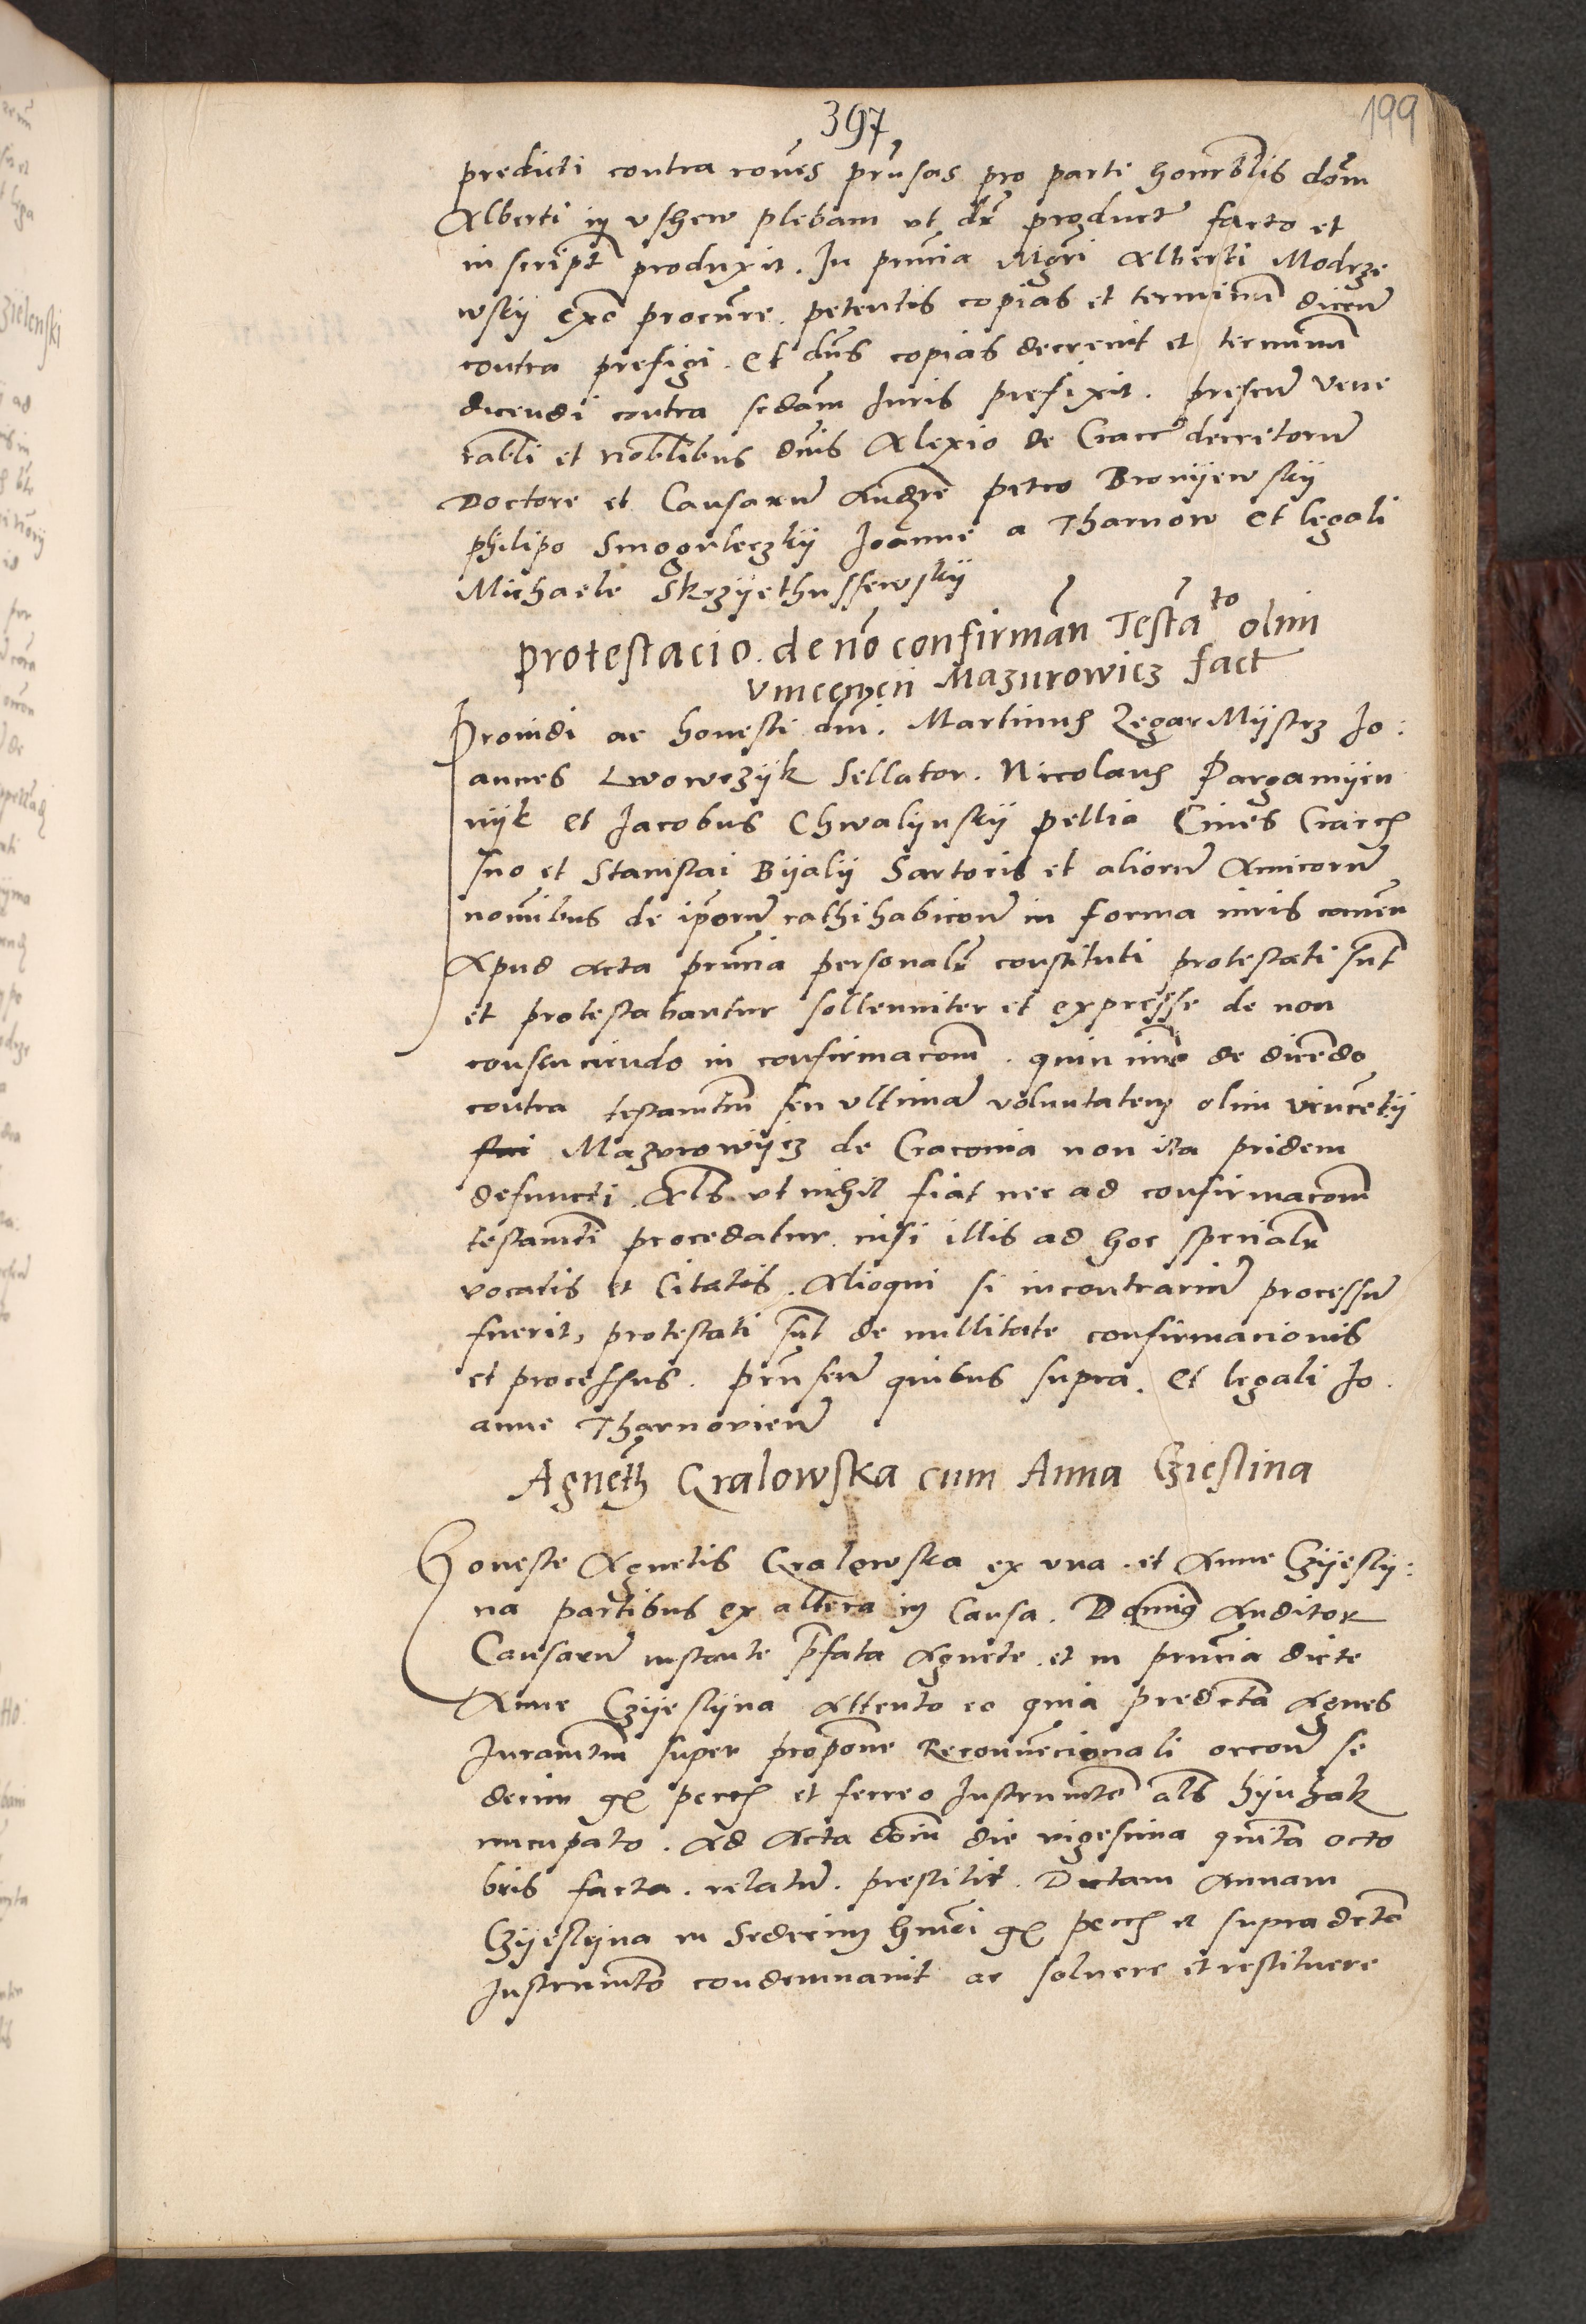 397
199
predicti contra rones prusas pro parte honrblis dom
Alberti in Vshew plebani ut dr productu facto et
in script produxit. In pruncia Mgri Alberti Modrze
wsky exo procure. petentis copias et terminu dicen
contra prefigi. Et dns copias decrevit et terminu
dicendi contra sedam Juris prefixit. presen Vene
rabli et noblibus dnis Alexio de Crac decretoru
Doctore et Causaru Audre petro Bronyewsky
philipo Smoguleczky Joanne a Tharnow et legali
Michaele Skrzyethussewsky
Protestacio. de no confirman Testa to olim
Vincencii Mazurowicz fact
Providi ac honesti dni. Martinus ZegarMystrz Jo:
annes Lwowczyk Sellator. Nicolaus Pargamyen
nyk et Jacobus Chwalynsky pellio Cives Cracch
Suo et Stanislai Byaly Sartoris et alioru Amicoru
nomibus de iporu rathihabicon in forma iuris caven
Apud Acta pruncia personalr constituti protestati sunt
et protestabantur sollenniter et expresse de non
consenciendo in confirmacom. quin imo de dicendo
contra testamtm seu ultima voluntatem olim vincety
Mazurowycz de Cracovia non ita pridem
defuncti. Als ut nihil fiat nec ad confirmacom
testamti procedatur nisi illis ad hoc specialr
vocatis et Citatis. Alioqui si in contrariu processu
fuerit, protestati sunt de nullitate confirmacionis
et processus. prnsen quibus supra. Et legali Jo.
anne Tharnovien
Agneth Gralowska cum Anna Cziestina
Honeste Agnetis Gralowska ex una. et Anne Czyesty:
na partibus ex altera in Causa. Dominus Auditor
Causaru instante prefata Agnete. et in pruncia dicte
Anne Czyestyna Attento eo quia predicta Agnes
Juramtm super propone Reconvencionali occon se
decim gr pecch et ferreo Instrumto als hynhak
nucupato. Ad Acta dom die vigesima quinta octo
bris facta. relatu. prestitit. Dictam Annam
Czyestyna in Sedecim hmoi gr pecch et supradicto
Instrumto condemnavit ac solvere et restituere